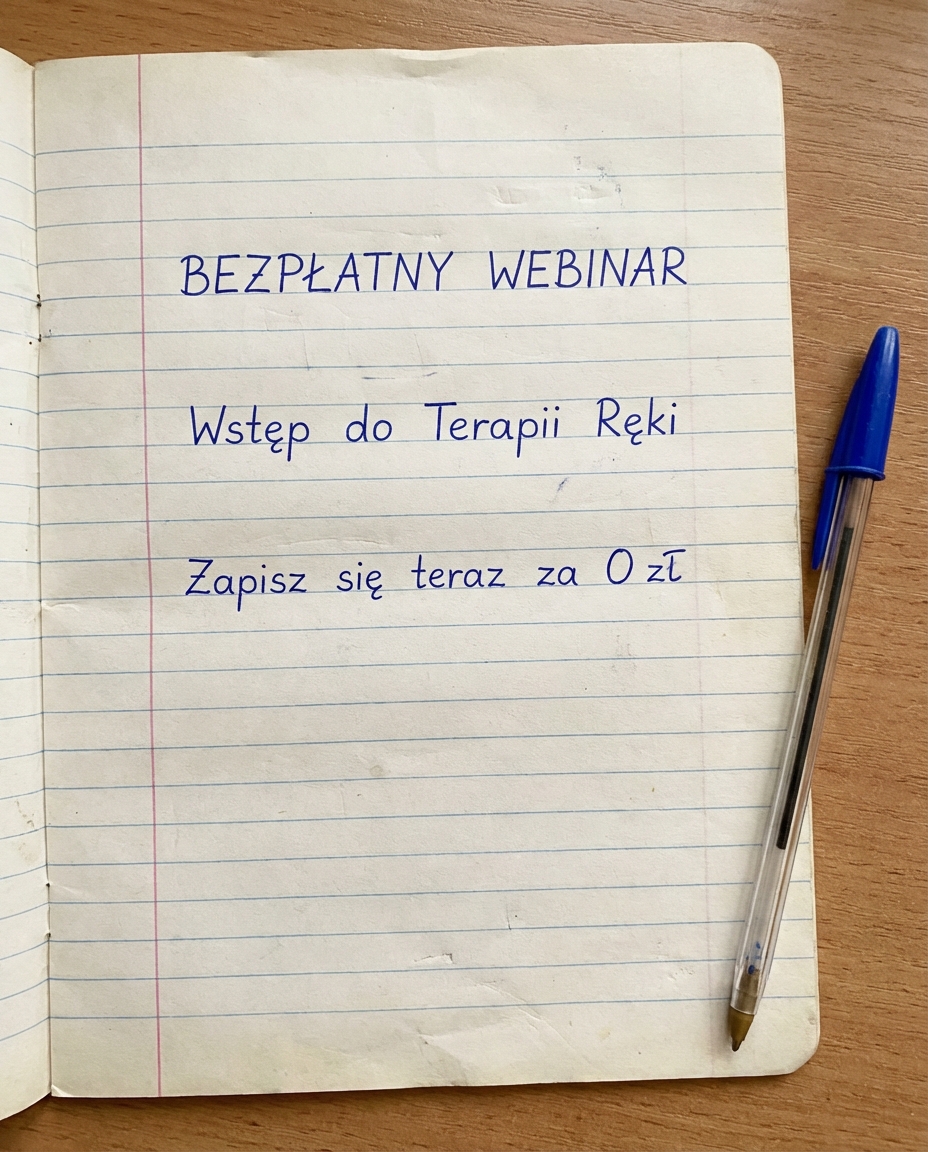 BEZPŁATNY WEBINAR
Wstęp do Terapii Ręki
Zapisz się teraz za 0 zł